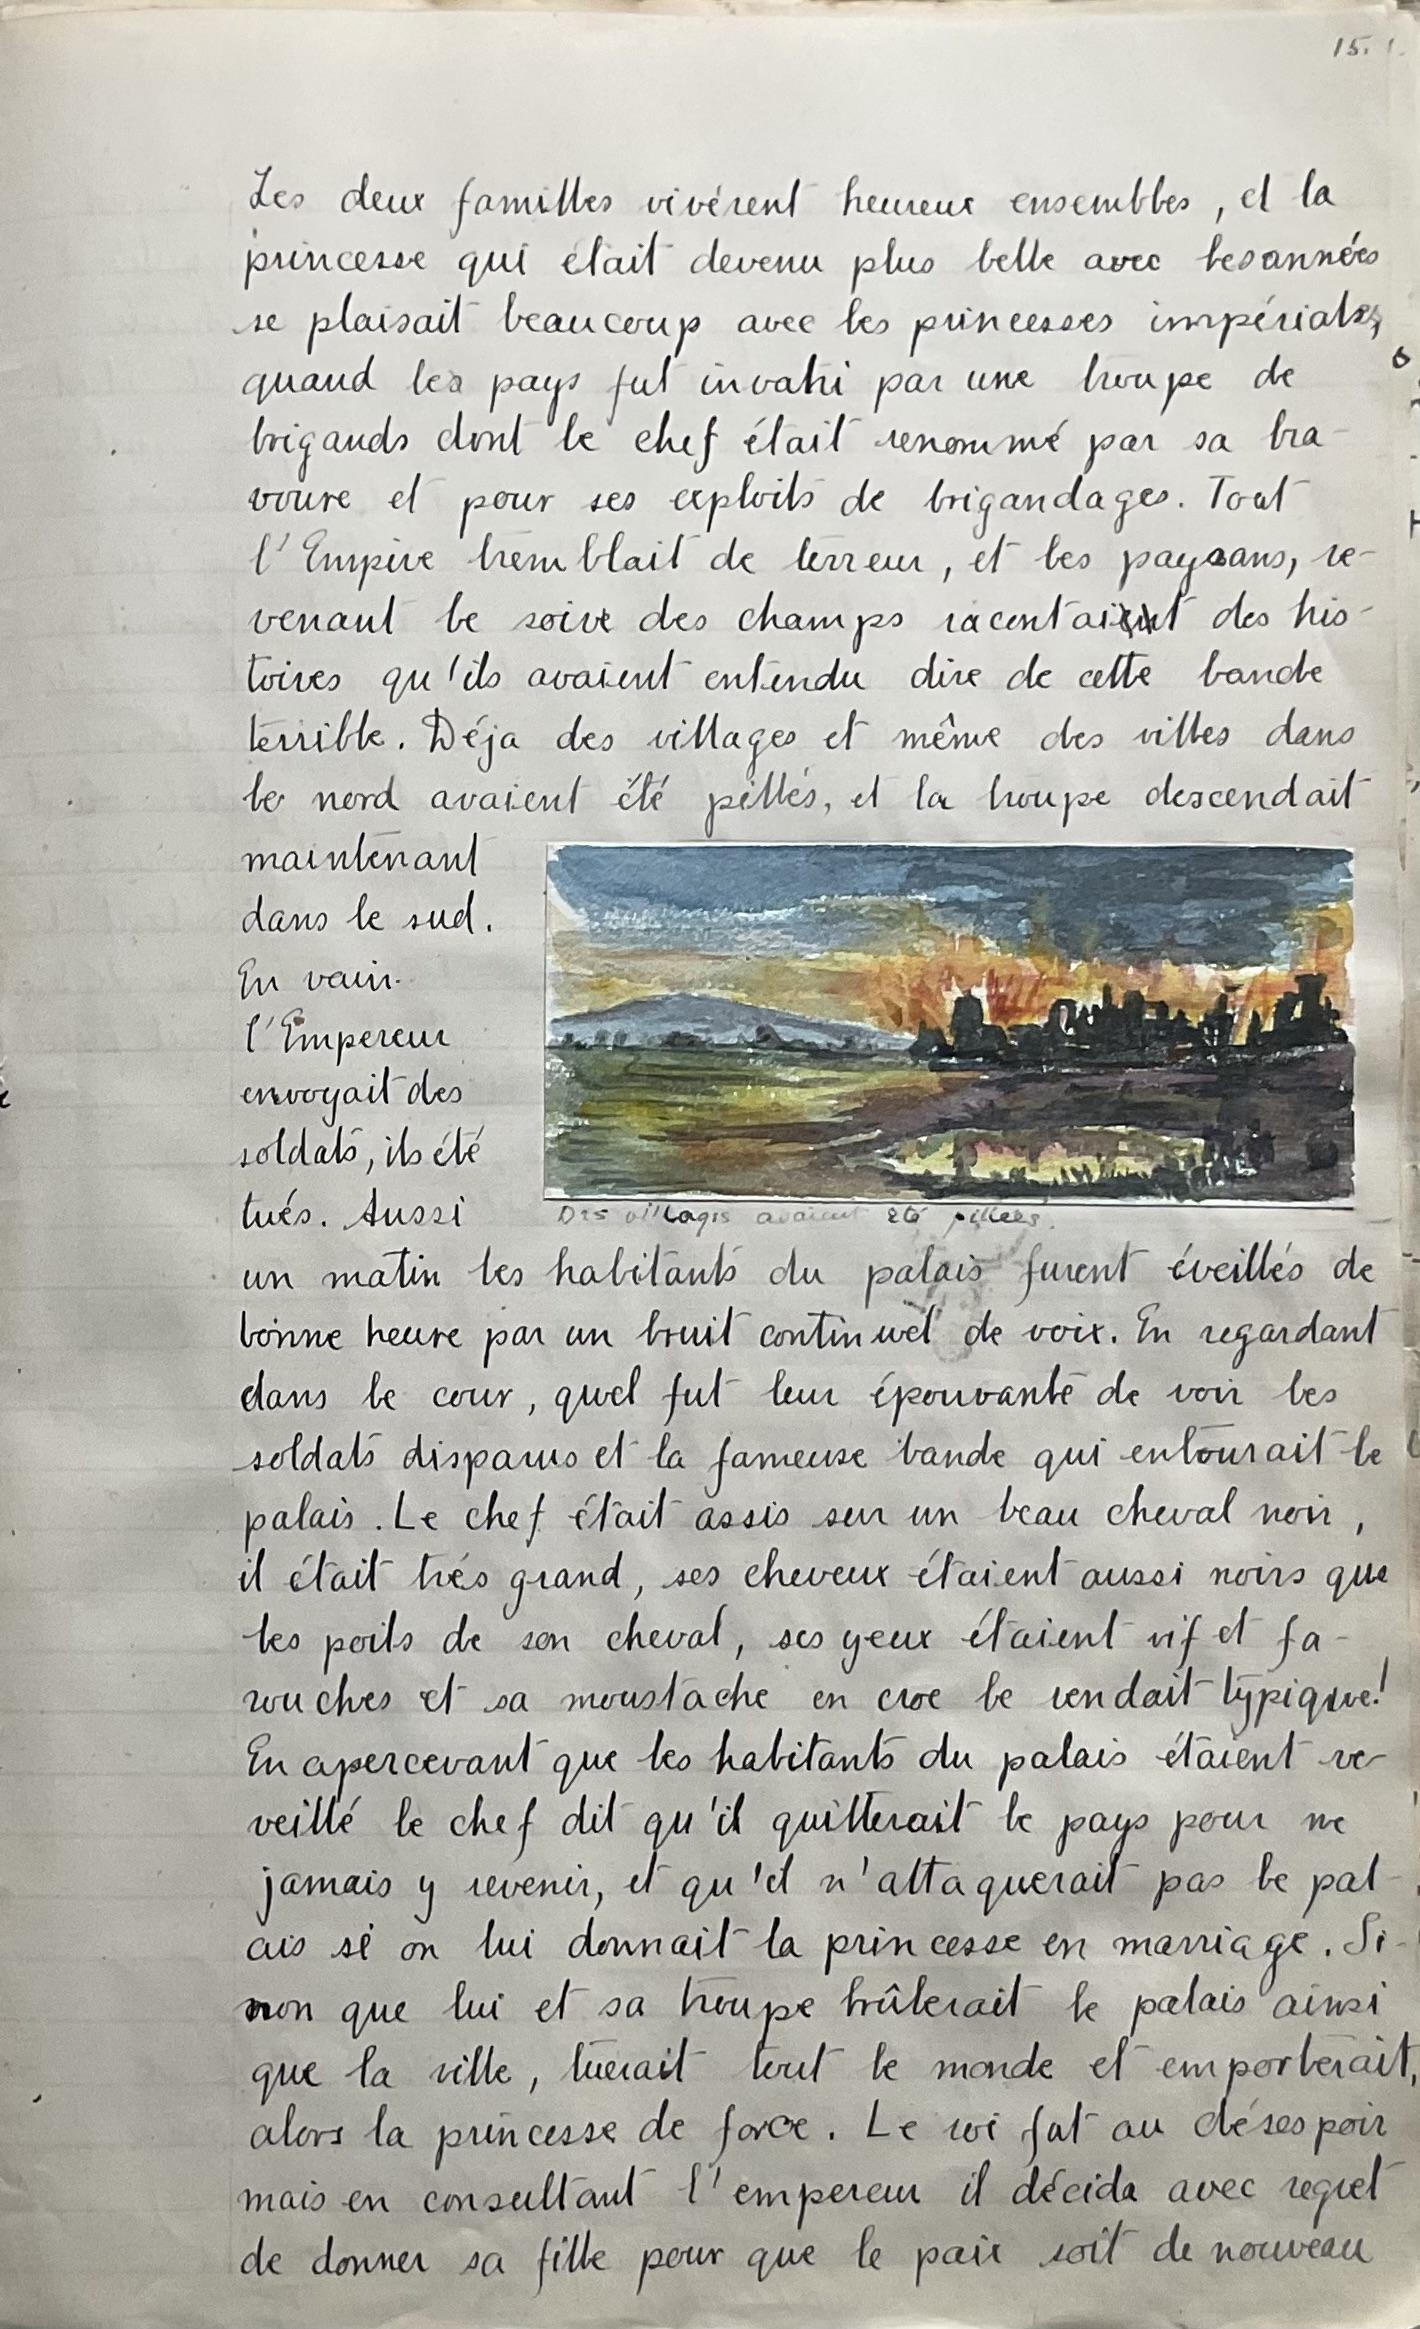 15.
Les deux familles vivérent heureux ensembles, et la
princesse qui était devenu plus belle avec les années
se plaisait beaucoup avec les princesses impériales,
quand les pays fut invahi par une troupe de
brigands dont le chef était renommé par sa bra-
voure et pour ses exploits de brigandages. Tout
l'Empire tremblait de terreur, et les paysans, re-
venant le soire des champs racontaient des his-
toires qu'ils avaient entendu dire de cette bande
terrible. Déja des villages et même des villes dans
le nord avaient été pillés, et la troupe descendait
maintenant
dans le sud.
En vain
l'Empereur
envoyait des
soldats, ils été
tués. Aussi
Des villages avaient été pillées.
un matin les habitants du palais furent éveillés de
bonne heure par un bruit continuel de voix. En regardant
dans le cour, quel fut leur épouvante de voir les
soldats disparus et la fameuse bande qui entourait le
palais. Le chef était assis sur un beau cheval noir,
il était trés grand, ses cheveux étaient aussi noirs que
les poils de son cheval, ses yeux étaient vif et fa-
rouches et sa moustache en croc le rendait typique!
En apercevant que les habitants du palais étaient re-
veillé le chef dit qu'il quitterait le pays pour ne
jamais y revenir, et qu'il n'attaquerait pas le pal-
ais si on lui donnait la princesse en marriage. Si-
non que lui et sa troupe brûlerait le palais ainsi
que la ville, tuerait tout le monde et emporterait,
alors la princesse de force. Le roi fut au désespoir
mais en consultant l'empereur il décida avec regret
de donner sa fille pour que le paix soit de nouveau